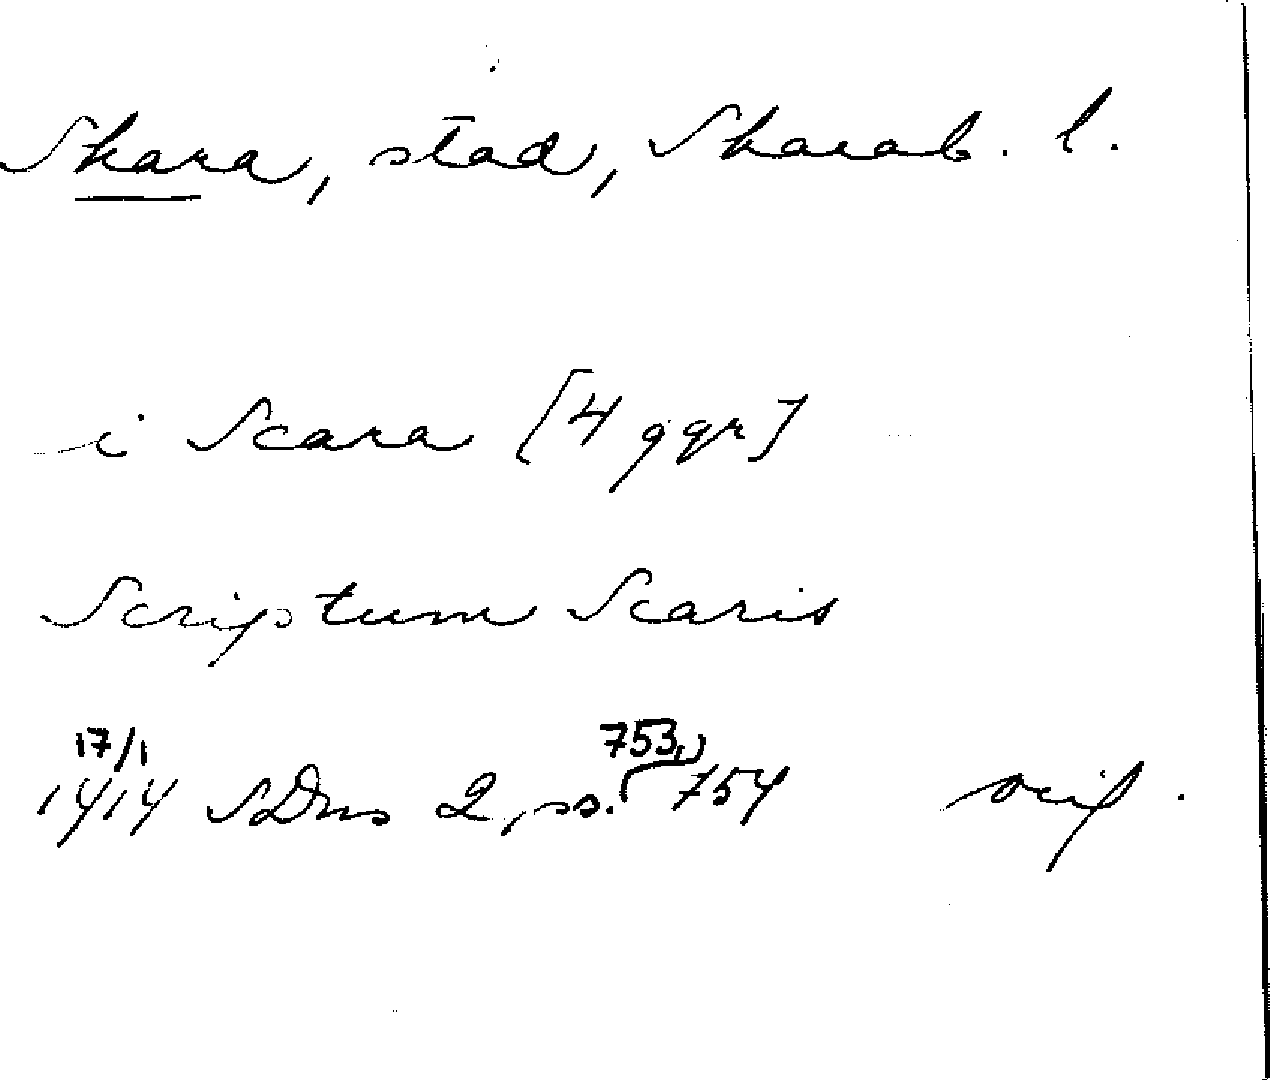 Skara, stad, Skarab. l.
i Scara [4 ggr]
Scriptum Scaris
17/1 753,
1414 SDns 2, ss. 754 orig.